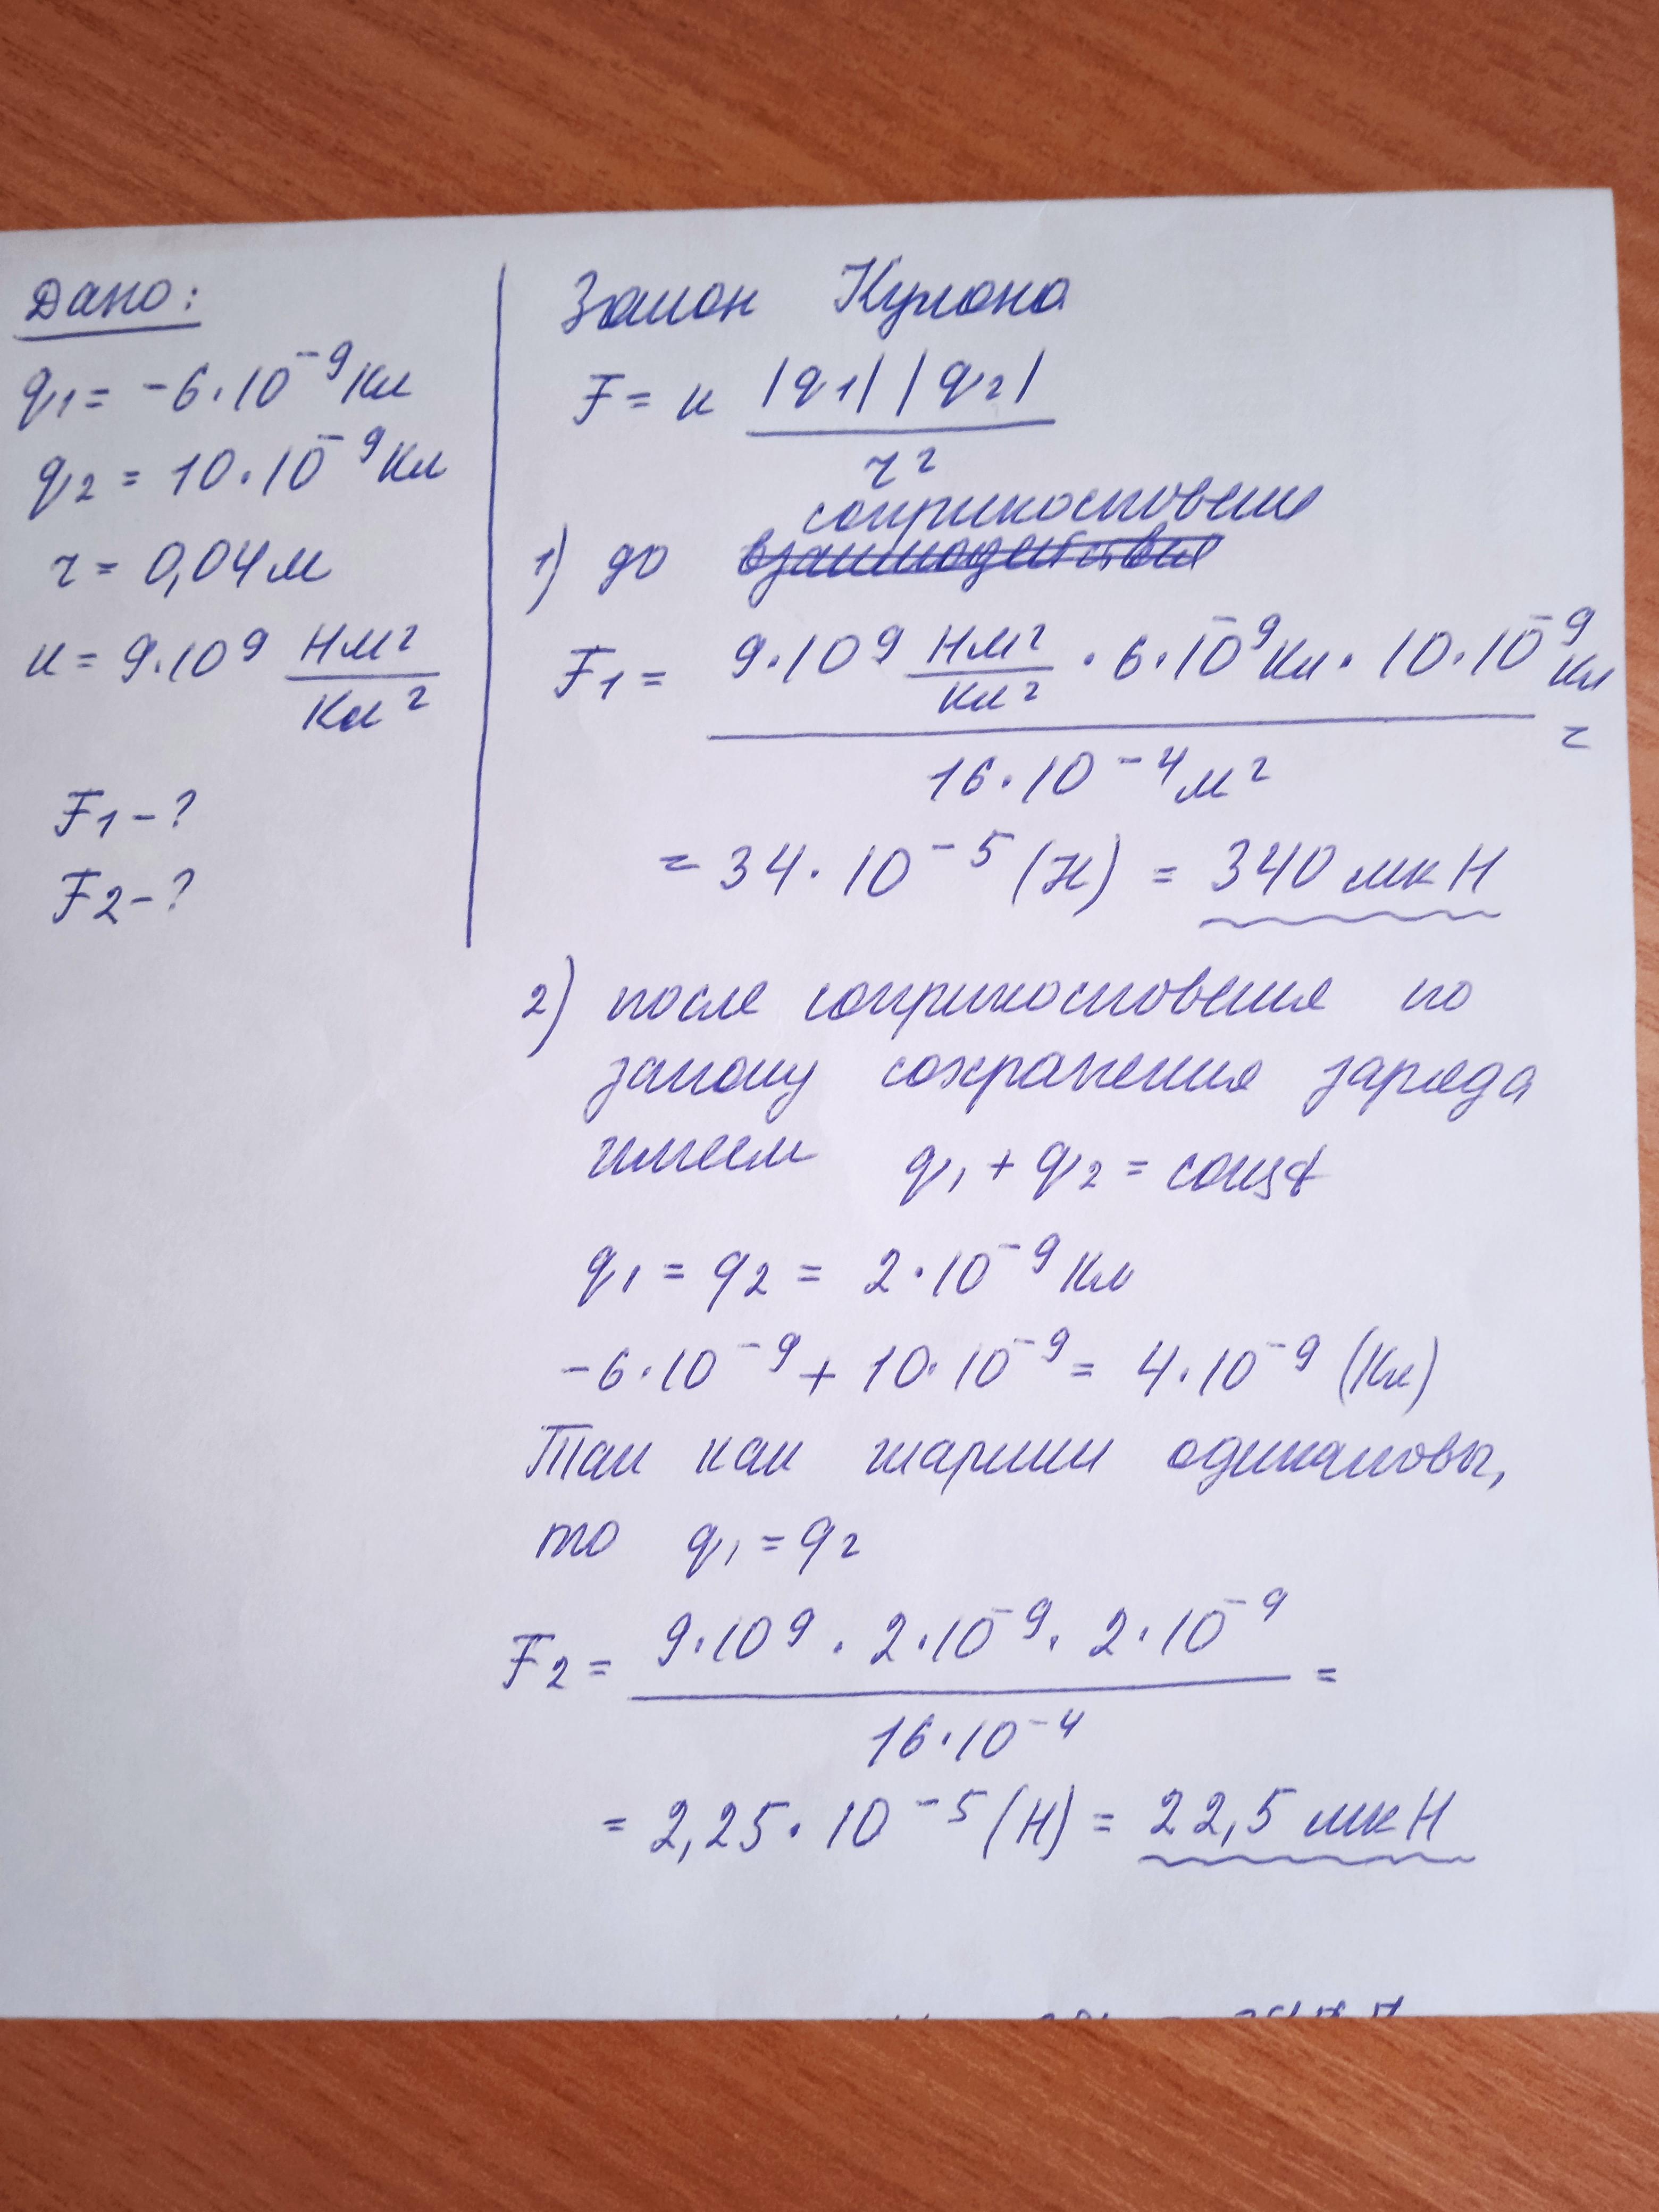 Дано:
q₁ = -6·10⁻⁹ Кл
q₂ = 10·10⁻⁹ Кл
r = 0,04 м
к = 9·10⁹ Нм²/Кл²
F₁ - ?
F₂ - ?
Закон Кулона
F = к |q₁| |q₂| / r²
соприкосновения
1) до взаимодействия
F₁ = 9·10⁹ Нм²/Кл² · 6·10⁻⁹ Кл · 10·10⁻⁹ Кл / 16·10⁻⁴ м² =
= 34·10⁻⁵ (Н) = 340 мк Н
2) после соприкосновения по
закону сохранения заряда
имеем q₁ + q₂ = const
q₁ = q₂ = 2·10⁻⁹ Кл
-6·10⁻⁹ + 10·10⁻⁹ = 4·10⁻⁹ (Кл)
Так как шарики одинаковы,
то q₁ = q₂
F₂ = 9·10⁹ · 2·10⁻⁹ · 2·10⁻⁹ / 16·10⁻⁴ =
= 2,25·10⁻⁵ (Н) = 22,5 мк Н